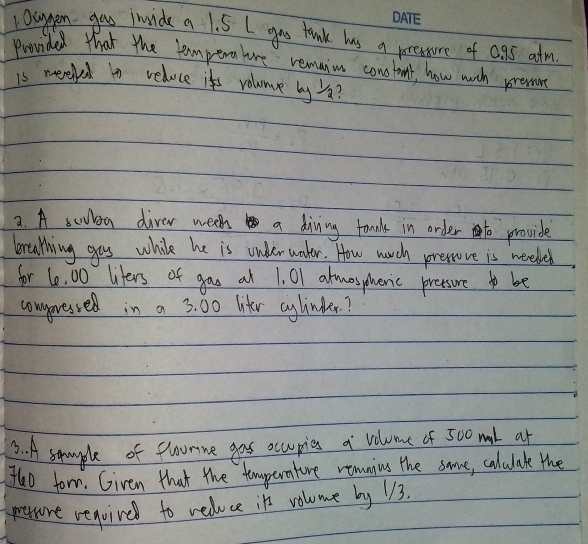 DATE
1. Oxygen gas inside a 1.5 L gas tank has a pressure of 0.95 atm.
Provided that the temperature remains constant, how much pressure
is needed to reduce its volume by 1/2?
2. A scuba diver needs a diving tank in order to provide
breathing gas while he is underwater. How much pressure is needed
for 6.00 liters of gas at 1.01 atmospheric pressure to be
compressed in a 3.00 liter cylinder?
3. A sample of flourine gas occupies a volume of 500 mL at
760 torr. Given that the temperature remains the same, calculate the
pressure required to reduce its volume by 1/3.